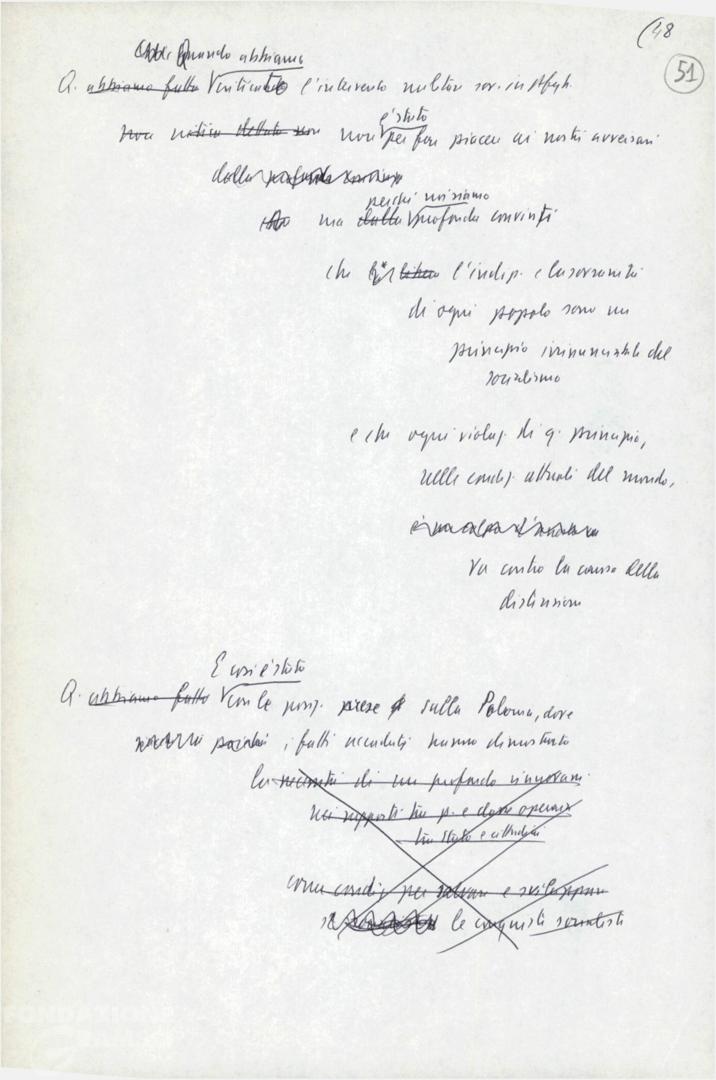 (48
51
Quando abbiamo
Q. abbiamo fatto criticato l'intervento militar sov. in Afgh.
è stato
non per far piacere ai nostri avversari
dalla
perché noi siamo
ma dalla profonda convinti
che l'indip. e la sovranità
di ogni popolo sono un
principio irrinunciabile del
socialismo
e che ogni violaz. di q. principio,
nelle condiz. attuali del mondo,
va contro la causa della
distensione
E così è stato
Q. abbiamo fatto con le posiz. prese sulla Polonia, dove
i fatti accaduti hanno dimostrato
la necessità di un profondo rinnovam.
nei rapporti tra p. e classe operaia
tra stato e cittadini
come condiz. per salvare e sviluppare
le conquiste socialiste
FONDAZIONE